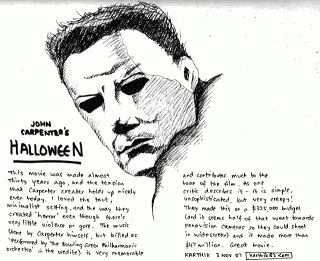 JOHN
CARPENTER'S
HALLOWEEN
This movie was made almost
thirty years ago, and the tension
that Carpenter creates holds up nicely
even today. I loved the taut,
minimalist setting, and the way they
created 'horror' even though there's
very little violence or gore. The music
(done by Carpenter himself, but billed as
'Performed by The Bowling Green Philharmonic
orchestra' in the credits) is very memorable
and contributes much to the
tone of the film. As one
critic describes it - it is simple,
unsophisticated, but very creepy!
They made this on a $325,000 budget
(and it seems half of that went towards
panavision cameras so they could shoot
in widescreen) and it made more than
$47 million. Great movie.
KARTHIK 3 NOV 07